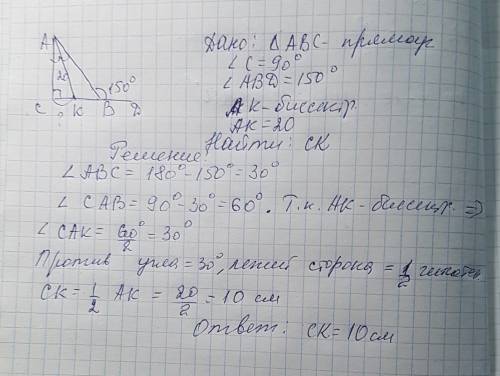 Дано: △ABC - прямоуг
∠C = 90°
∠ABD = 150°
AK - биссектр.
AK = 20
Найти: CK
A
20
150°
C K B D
?
Решение:
∠ABC = 180° - 150° = 30°
∠CAB = 90° - 30° = 60°. Т.к. AK - биссект. ⇒
∠CAK = 60°/2 = 30°
Против угла = 30°, лежит сторона = 1/2 гипотен.
CK = 1/2 AK = 20/2 = 10 см
Ответ: CK = 10 см